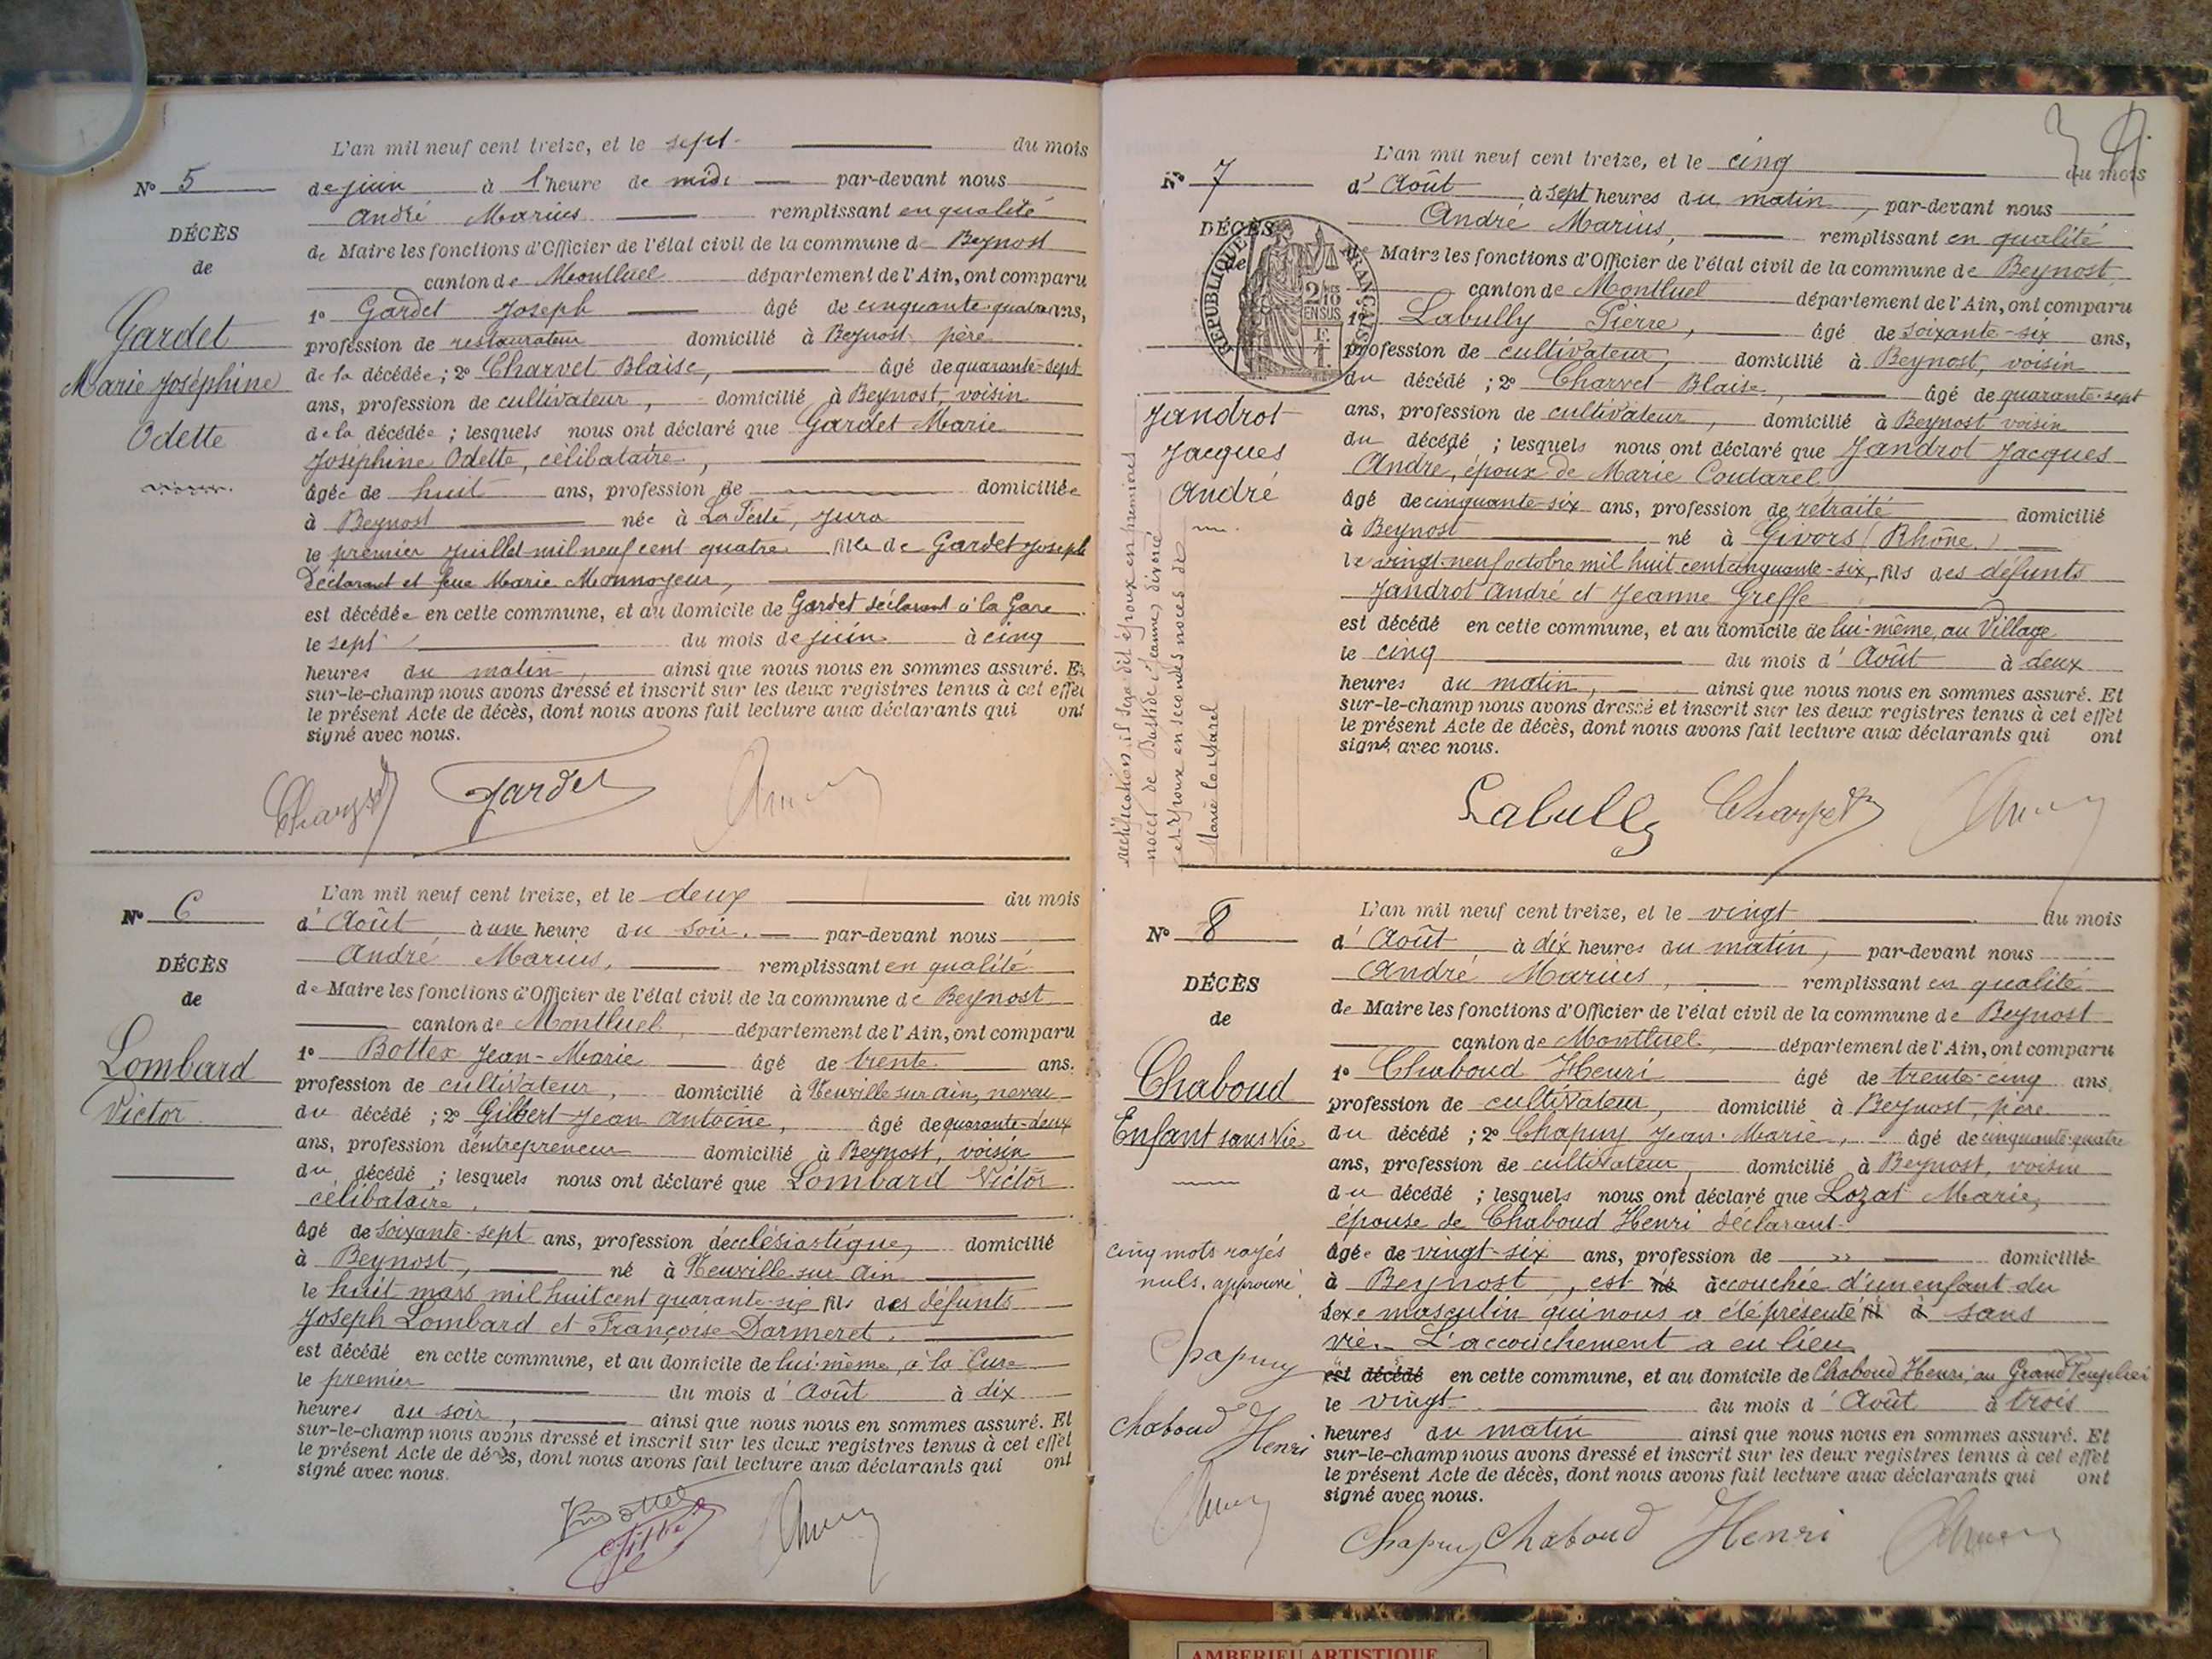 L'an mil neuf cent treize, et le sept du mois
N° 5
de juin à 1 heure de midi par-devant nous
André Marius remplissant en qualité
DÉCÈS
de
de Maire les fonctions d'Officier de l'état civil de la commune de Beynost
canton de Montluel département de l'Ain, ont comparu
Gardet
Marie Joséphine
Odette
1° Gardet Joseph âgé de cinquante-quatre ans,
profession de restaurateur domicilié à Beynost père
de la décédée; 2° Charvet Blaise, âgé de quarante-sept
ans, profession de cultivateur, domicilié à Beynost, voisin
de la décédée; lesquels nous ont déclaré que Gardet Marie
Joséphine Odette, célibataire,
âgée de huit ans, profession de domiciliée
à Beynost née à Jura
le premier juillet mil neuf cent quatre fille de Gardet Joseph
déclarant et feue Marie Monnoyeur,
est décédée en cette commune, et au domicile de Gardet déclarant à la Gare
le sept du mois de juin à cinq
heures du matin, ainsi que nous nous en sommes assuré. Et
sur-le-champ nous avons dressé et inscrit sur les deux registres tenus à cet effet
le présent Acte de décès, dont nous avons fait lecture aux déclarants qui ont
signé avec nous.
Charvet Gardet
L'an mil neuf cent treize, et le deux du mois
N° 6
d'Août à une heure du soir. par-devant nous
André Marius, remplissant en qualité
DÉCÈS
de
de Maire les fonctions d'Officier de l'état civil de la commune de Beynost
canton de Montluel, département de l'Ain, ont comparu
Lombard
Victor
1° Bottex Jean-Marie âgé de trente ans.
profession de cultivateur, domicilié à Neuville sur Ain, neveu
du décédé; 2° Gilbert Jean Antoine, âgé de quarante-deux
ans, profession d'entrepreneur domicilié à Beynost, voisin
du décédé; lesquels nous ont déclaré que Lombard Victor
célibataire,
âgé de soixante-sept ans, profession d'ecclésiastique, domicilié
à Beynost, né à Neuville-sur-Ain
le huit mars mil huit cent quarante-six fils des défunts
Joseph Lombard et Françoise Darmeret.
est décédé en cette commune, et au domicile de lui-même, à la Cure
le premier du mois d'Août à dix
heures du soir, ainsi que nous nous en sommes assuré. Et
sur-le-champ nous avons dressé et inscrit sur les deux registres tenus à cet effet
le présent Acte de décès, dont nous avons fait lecture aux déclarants qui ont
signé avec nous.
Bottex
L'an mil neuf cent treize, et le cinq du mois
N° 7
d'Août à sept heures du matin, par-devant nous
André Marius, remplissant en qualité
DÉCÈS
de
RÉPUBLIQUE FRANÇAISE
2/10
EN SUS
de Maire les fonctions d'Officier de l'état civil de la commune de Beynost
canton de Montluel département de l'Ain, ont comparu
Jandrot
Jacques
André
1° Labully Pierre, âgé de soixante-six ans,
profession de cultivateur, domicilié à Beynost, voisin
du décédé; 2° Charvet Blaise, âgé de quarante-sept
ans, profession de cultivateur, domicilié à Beynost voisin
du décédé; lesquels nous ont déclaré que Jandrot Jacques
André, époux de Marie Coutarel
âgé de cinquante-six ans, profession de retraité domicilié
à Beynost né à Givors (Rhône)
le vingt-neuf octobre mil huit cent cinquante-six, fils des défunts
Jandrot André et Jeanne Greffe
est décédé en cette commune, et au domicile de lui-même, au Village
le cinq du mois d'Août à deux
heures du matin, ainsi que nous nous en sommes assuré. Et
sur-le-champ nous avons dressé et inscrit sur les deux registres tenus à cet effet
le présent Acte de décès, dont nous avons fait lecture aux déclarants qui ont
signé avec nous.
rectification: il sera dit époux en premières
noces de Bastide Jeanne, divorcé
et époux en secondes noces de
Marie Coutarel
Labully Charvet
L'an mil neuf cent treize, et le vingt du mois
N° 8
d'Août à dix heures du matin, par-devant nous
André Marius, remplissant en qualité
DÉCÈS
de
de Maire les fonctions d'Officier de l'état civil de la commune de Beynost
canton de Montluel, département de l'Ain, ont comparu
Chaboud
Enfant sans vie
1° Chaboud Henri âgé de trente-cinq ans
profession de cultivateur, domicilié à Beynost, père
du décédé; 2° Chapuy Jean-Marie, âgé de cinquante-quatre
ans, profession de cultivateur, domicilié à Beynost, voisin
du décédé; lesquels nous ont déclaré que Lozat Marie,
épouse de Chaboud Henri déclarant
âgée de vingt-six ans, profession de » domiciliée
à Beynost, est né accouchée d'un enfant du
sexe masculin qui nous a été présenté à sans
vie. L'accouchement a eu lieu
est décédé en cette commune, et au domicile de Chaboud Henri, au Grand
le vingt du mois d'Août à trois
heures du matin ainsi que nous nous en sommes assuré. Et
sur-le-champ nous avons dressé et inscrit sur les deux registres tenus à cet effet
le présent Acte de décès, dont nous avons fait lecture aux déclarants qui ont
signé avec nous.
cinq mots rayés
nuls. approuvé
Chapuy
Chaboud Henri
Chapuy Chaboud Henri
AMBERIEU ARTISTIQUE